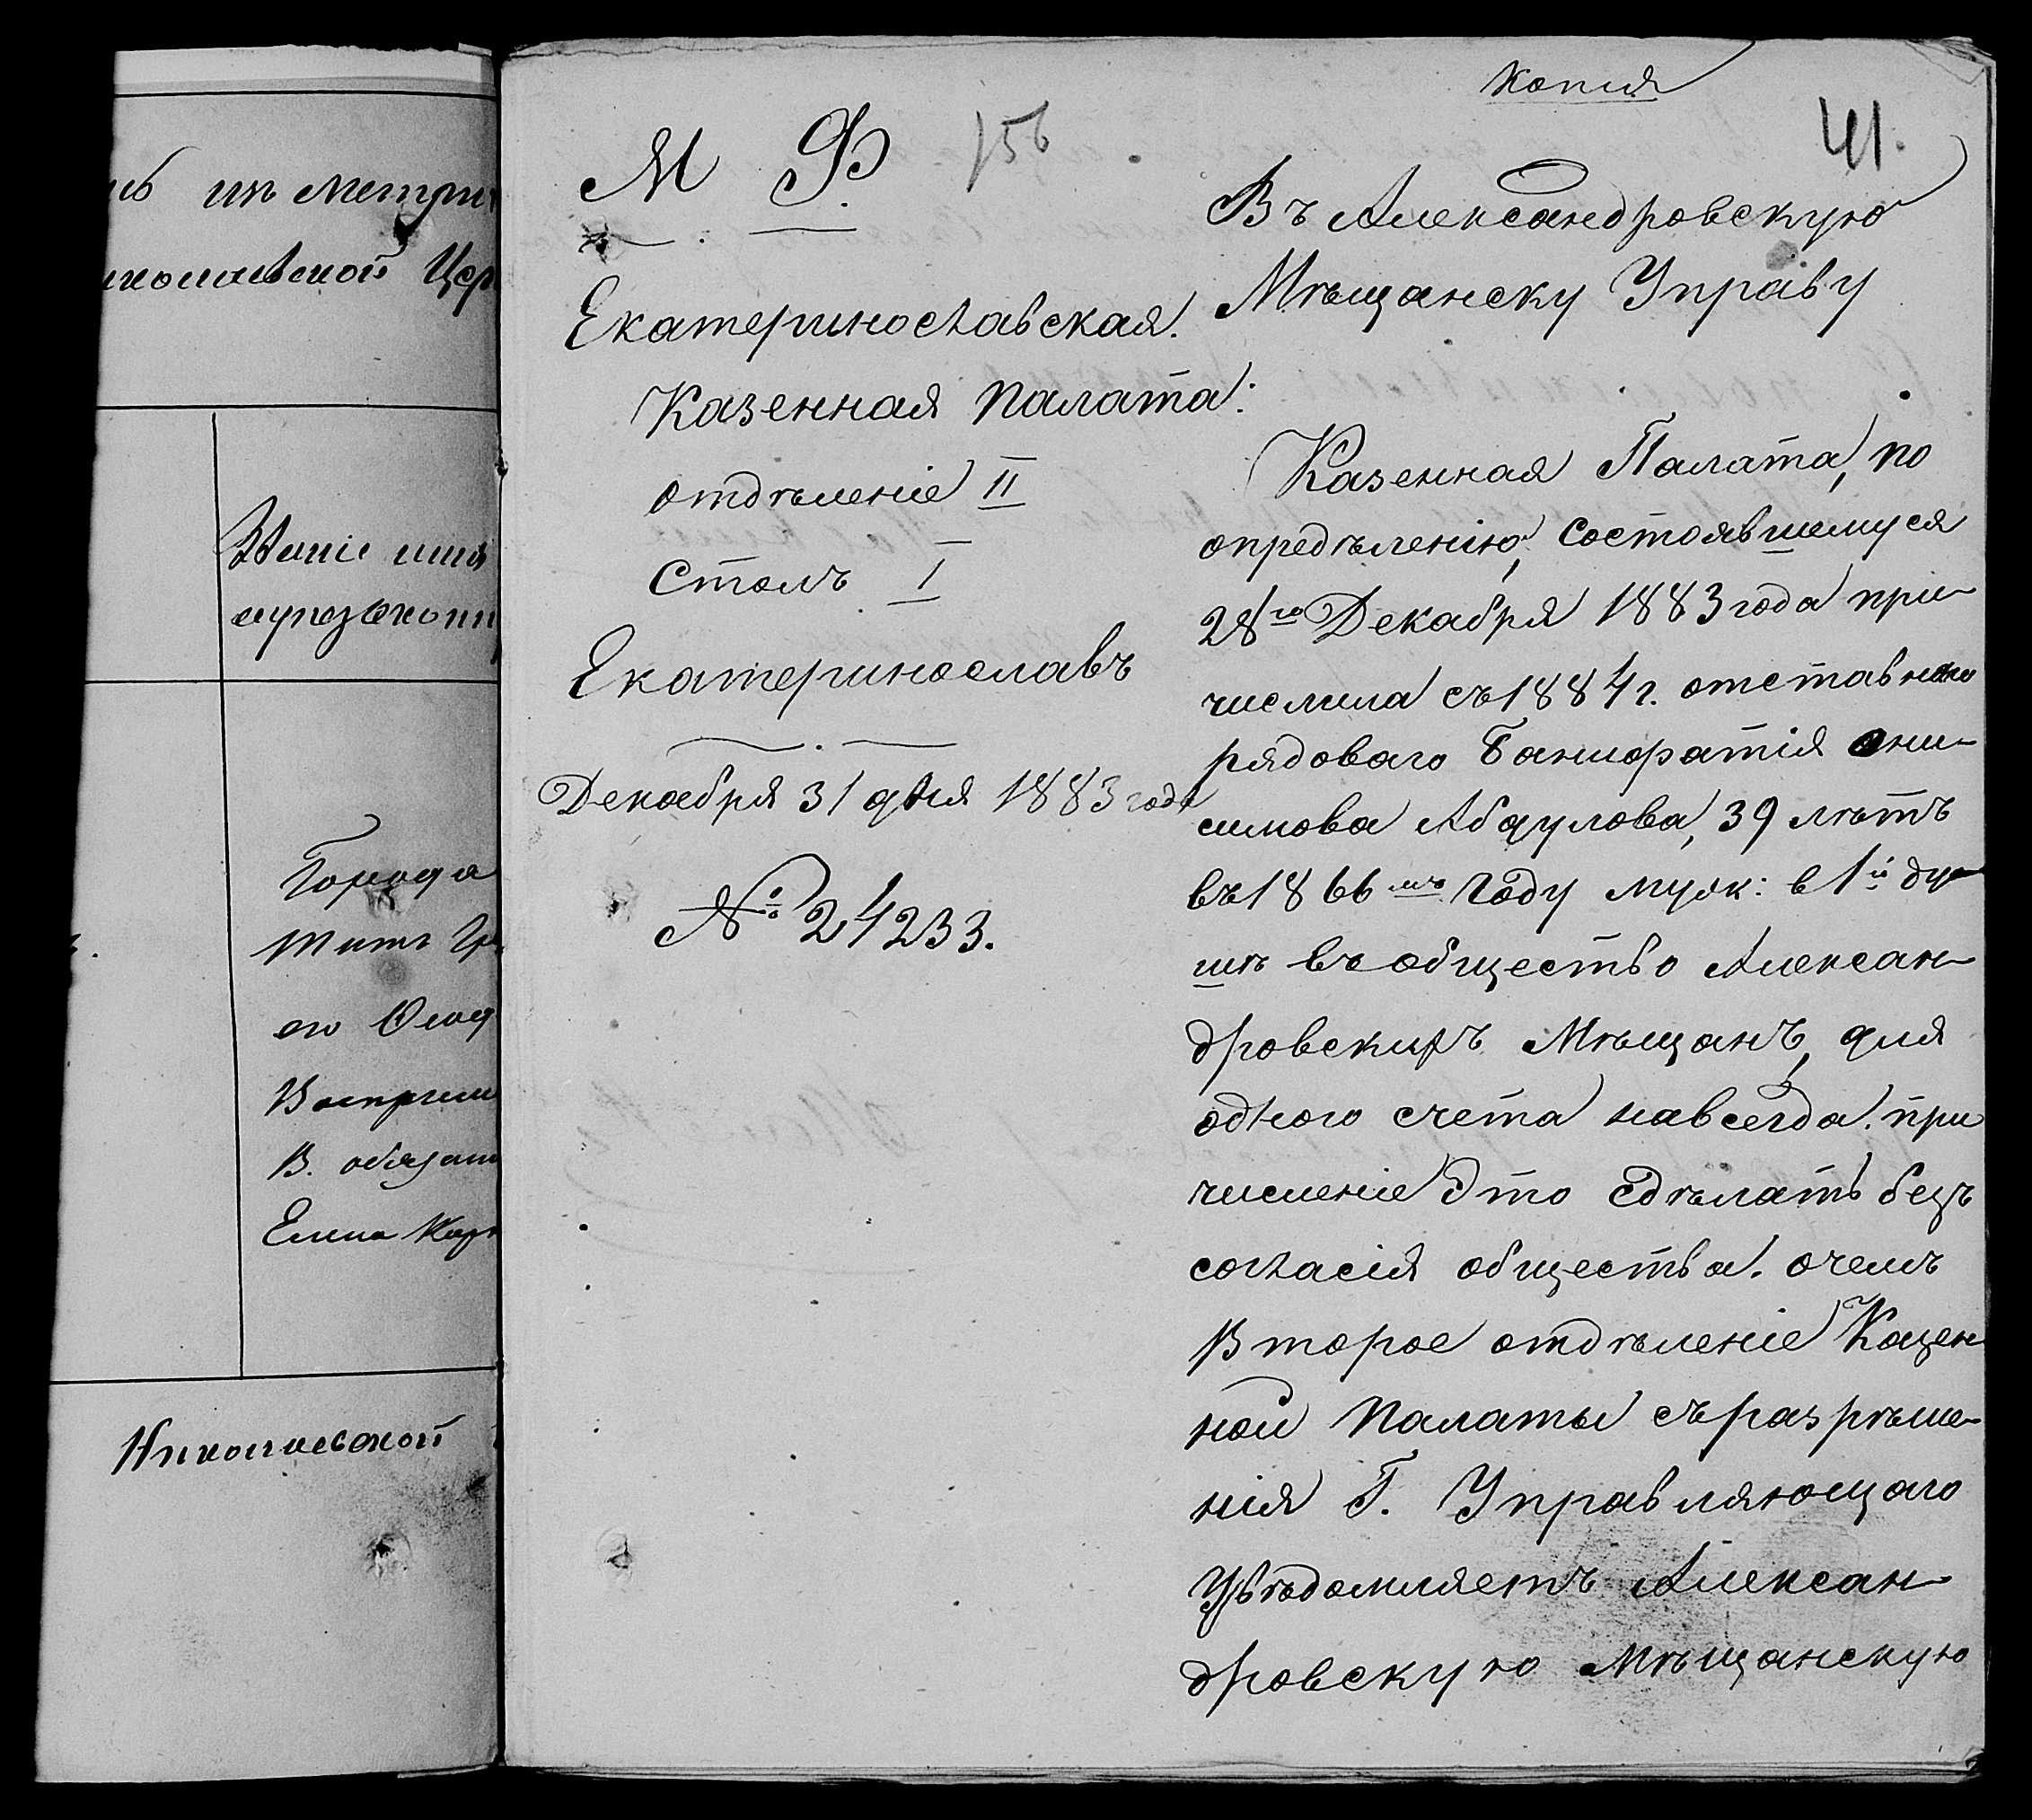 изъ метри
Николаевской Цер
Званіе имя
Города
его
В.
Елена
Николаевской
Копія
156
41.
М Ф.
Екатеринославская.
Казенная Палата.
отдѣленіе II
Столъ I
Екатеринославъ
Декабря 31 дня 1883 года
№ 24233.
Въ Александровскую
Мѣщанску Управу
Казенная Палата, по
опредѣленію, состоявшемуся
28го Декабря 1883 года при-
числила съ 1884 г. отставного
рядоваго Они-
симова Абдулова, 39 лѣтъ
въ 1866мъ году муж: в 1й ду
шѣ въ общество Алексан-
дровскихъ Мѣщанъ, для
одного счета навсегда. при
численіе Это сдѣлать безъ
согласія общества. очемъ
Второе отдѣленіе Казен
ной Палаты съ разрѣше-
нія Г. Управляющаго
Увѣдомляетъ Алексан-
дровскую Мѣщанскую